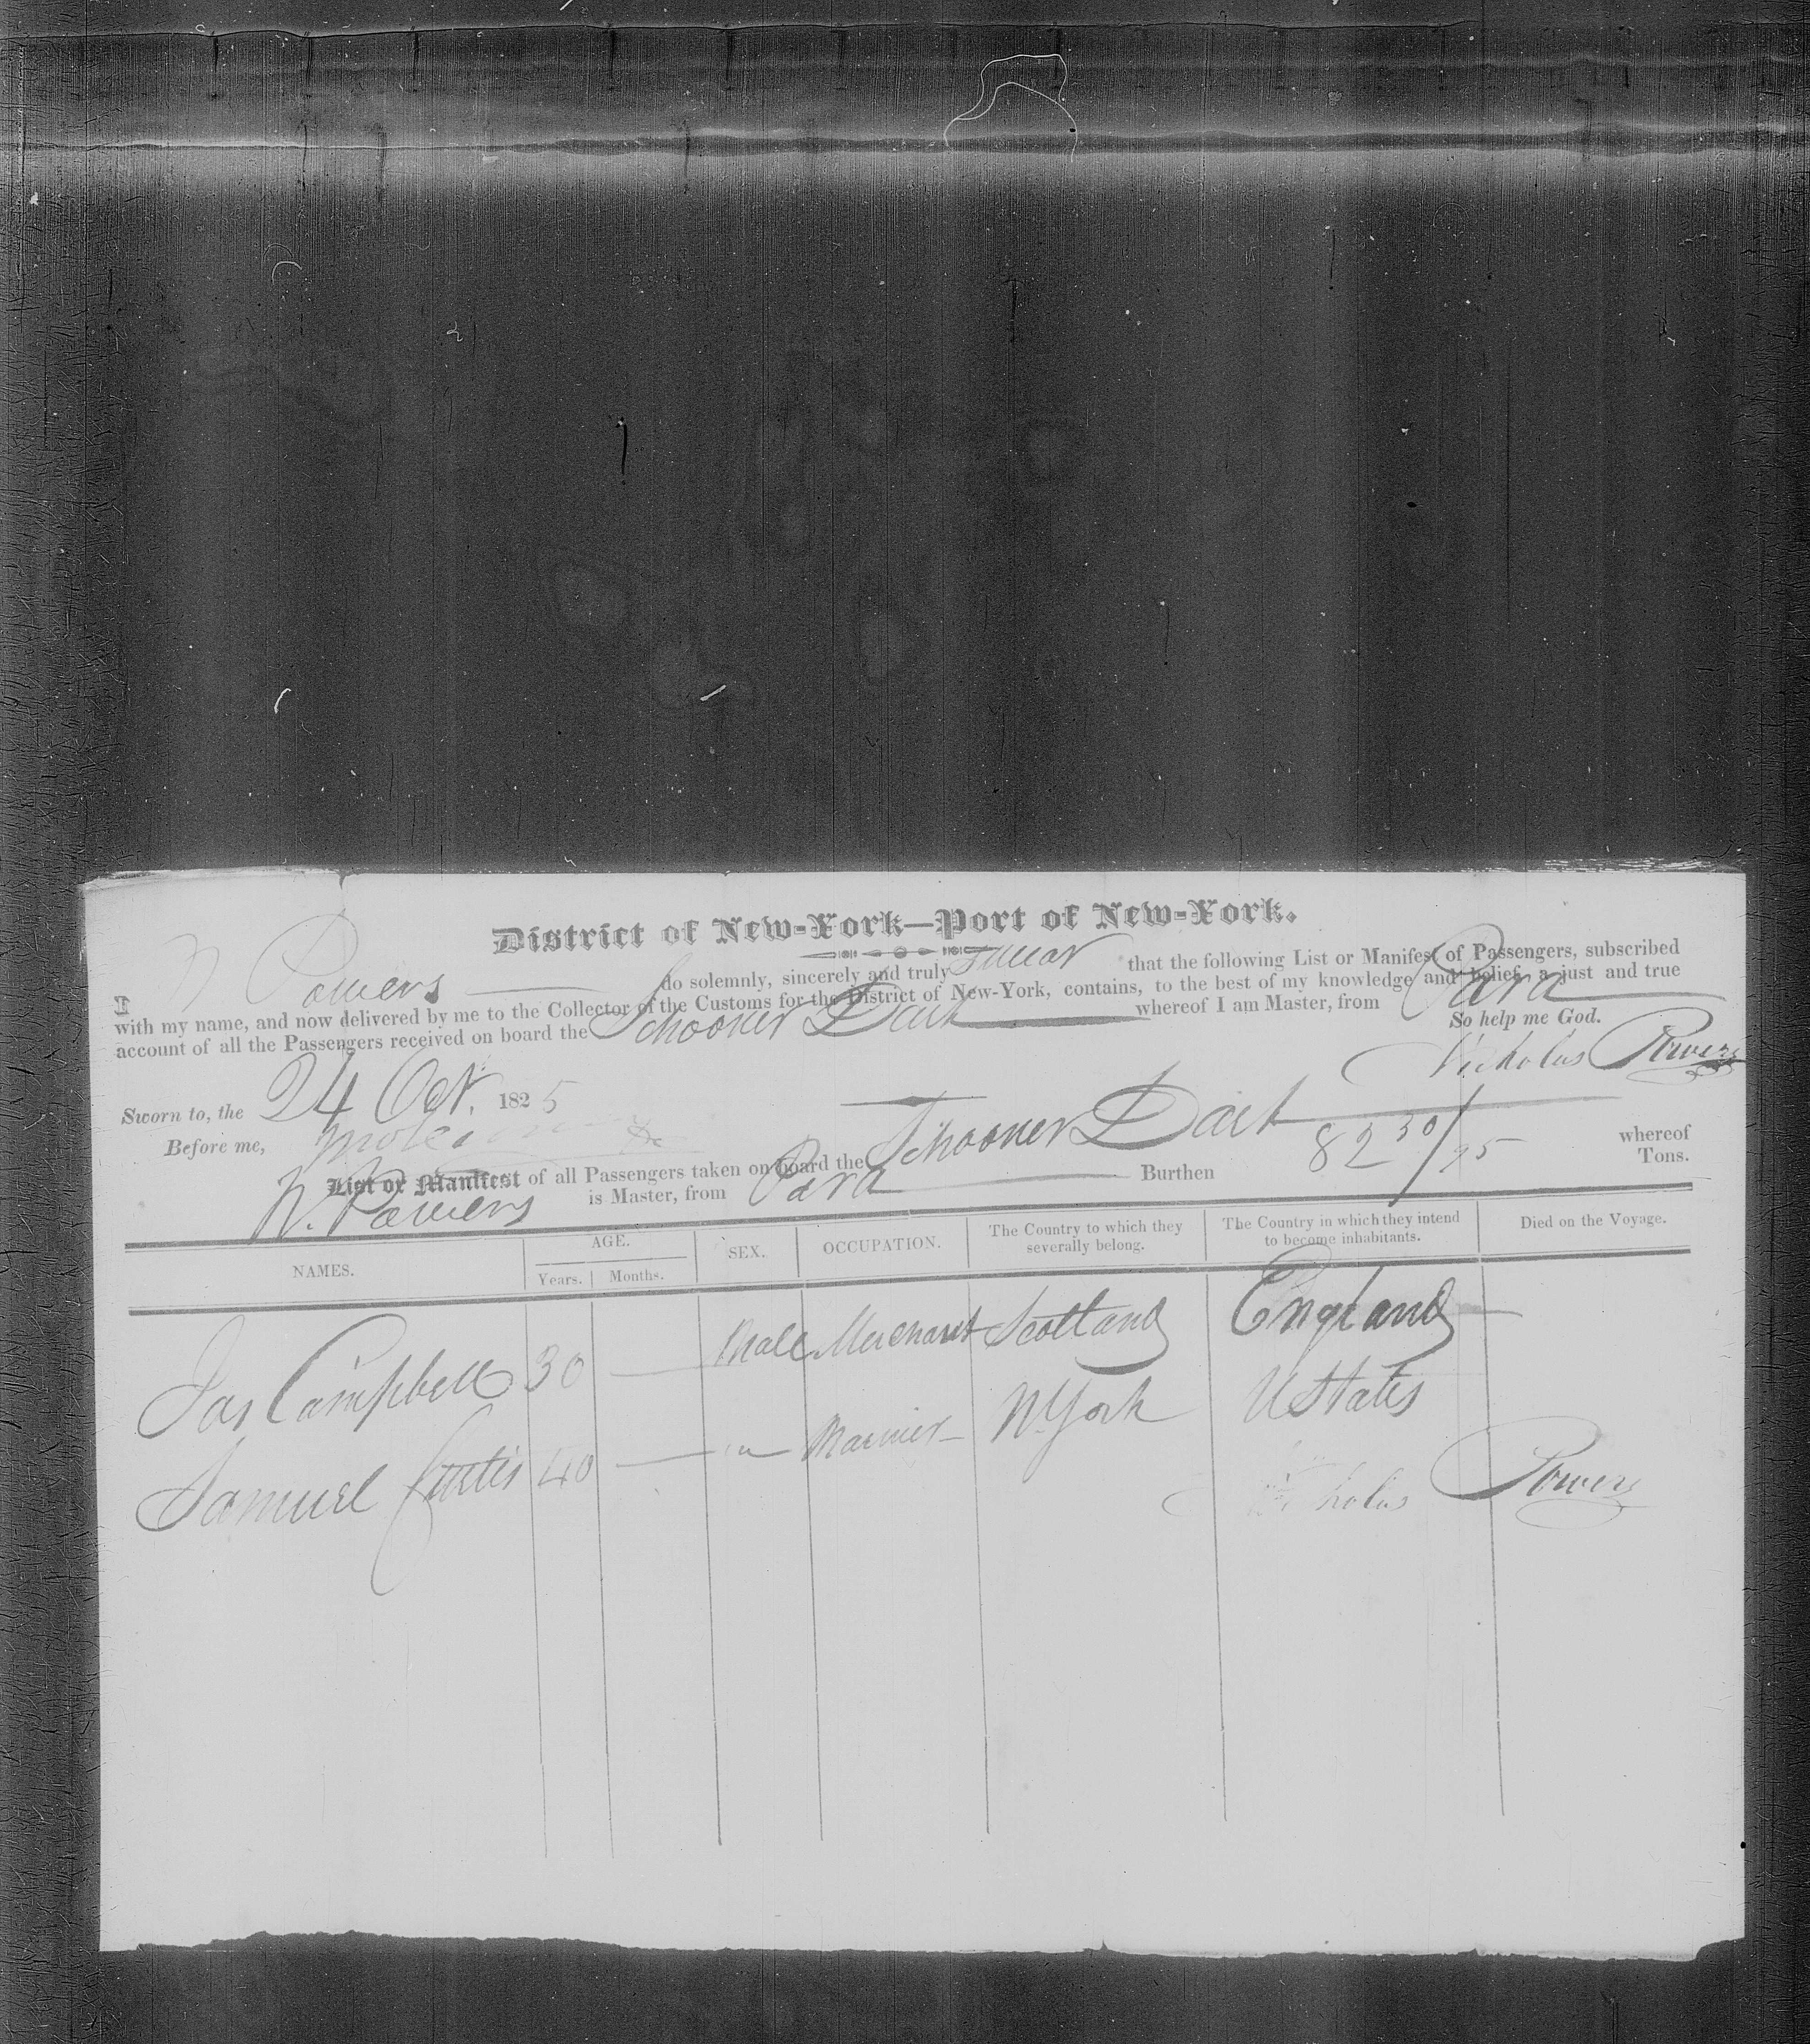 District of New-York—Port of New-York.
I N Powers do solemnly, sincerely and truly swear that the following List or Manifest of Passengers, subscribed
with my name, and now delivered by me to the Collector of the Customs for the District of New-York, contains, to the best of my knowledge and belief, a just and true
account of all the Passengers received on board the Schooner Dart whereof I am Master, from Para
So help me God.
Nicholas Powers
Sworn to, the 24 Oct. 1825
Before me,
List or Manifest of all Passengers taken on board the Schooner Dart whereof
N. Powers is Master, from Para Burthen 82 30/95 Tons.
NAMES. AGE. SEX. OCCUPATION. The Country to which they severally belong. The Country in which they intend to become inhabitants. Died on the Voyage.
Years. Months.
Jas Campbell 30 — Male Merchant Scotland England
Samuel Curtis 40 — " Mariner N. York U States
Nicholas Powers